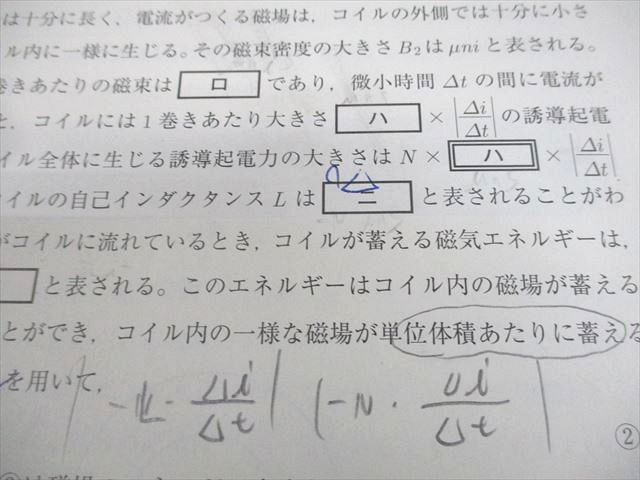 は十分に長く，電流がつくる磁場は，コイルの外側では十分に小さ
ル内に一様に生じる。その磁束密度の大きさ B₂ は μni と表される。
巻きあたりの磁束は ロ であり，微小時間 Δt の間に電流が
と，コイルには1巻きあたり大きさ ハ × |Δi/Δt| の誘導起電
イル全体に生じる誘導起電力の大きさは N × ハ × |Δi/Δt|
コイルの自己インダクタンス L は ニ と表されることがわ
がコイルに流れているとき，コイルが蓄える磁気エネルギーは，
と表される。このエネルギーはコイル内の磁場が蓄える
とができ，コイル内の一様な磁場が単位体積あたりに蓄える
を用いて，
Δi/Δt| |-N・Δi/Δt|
②